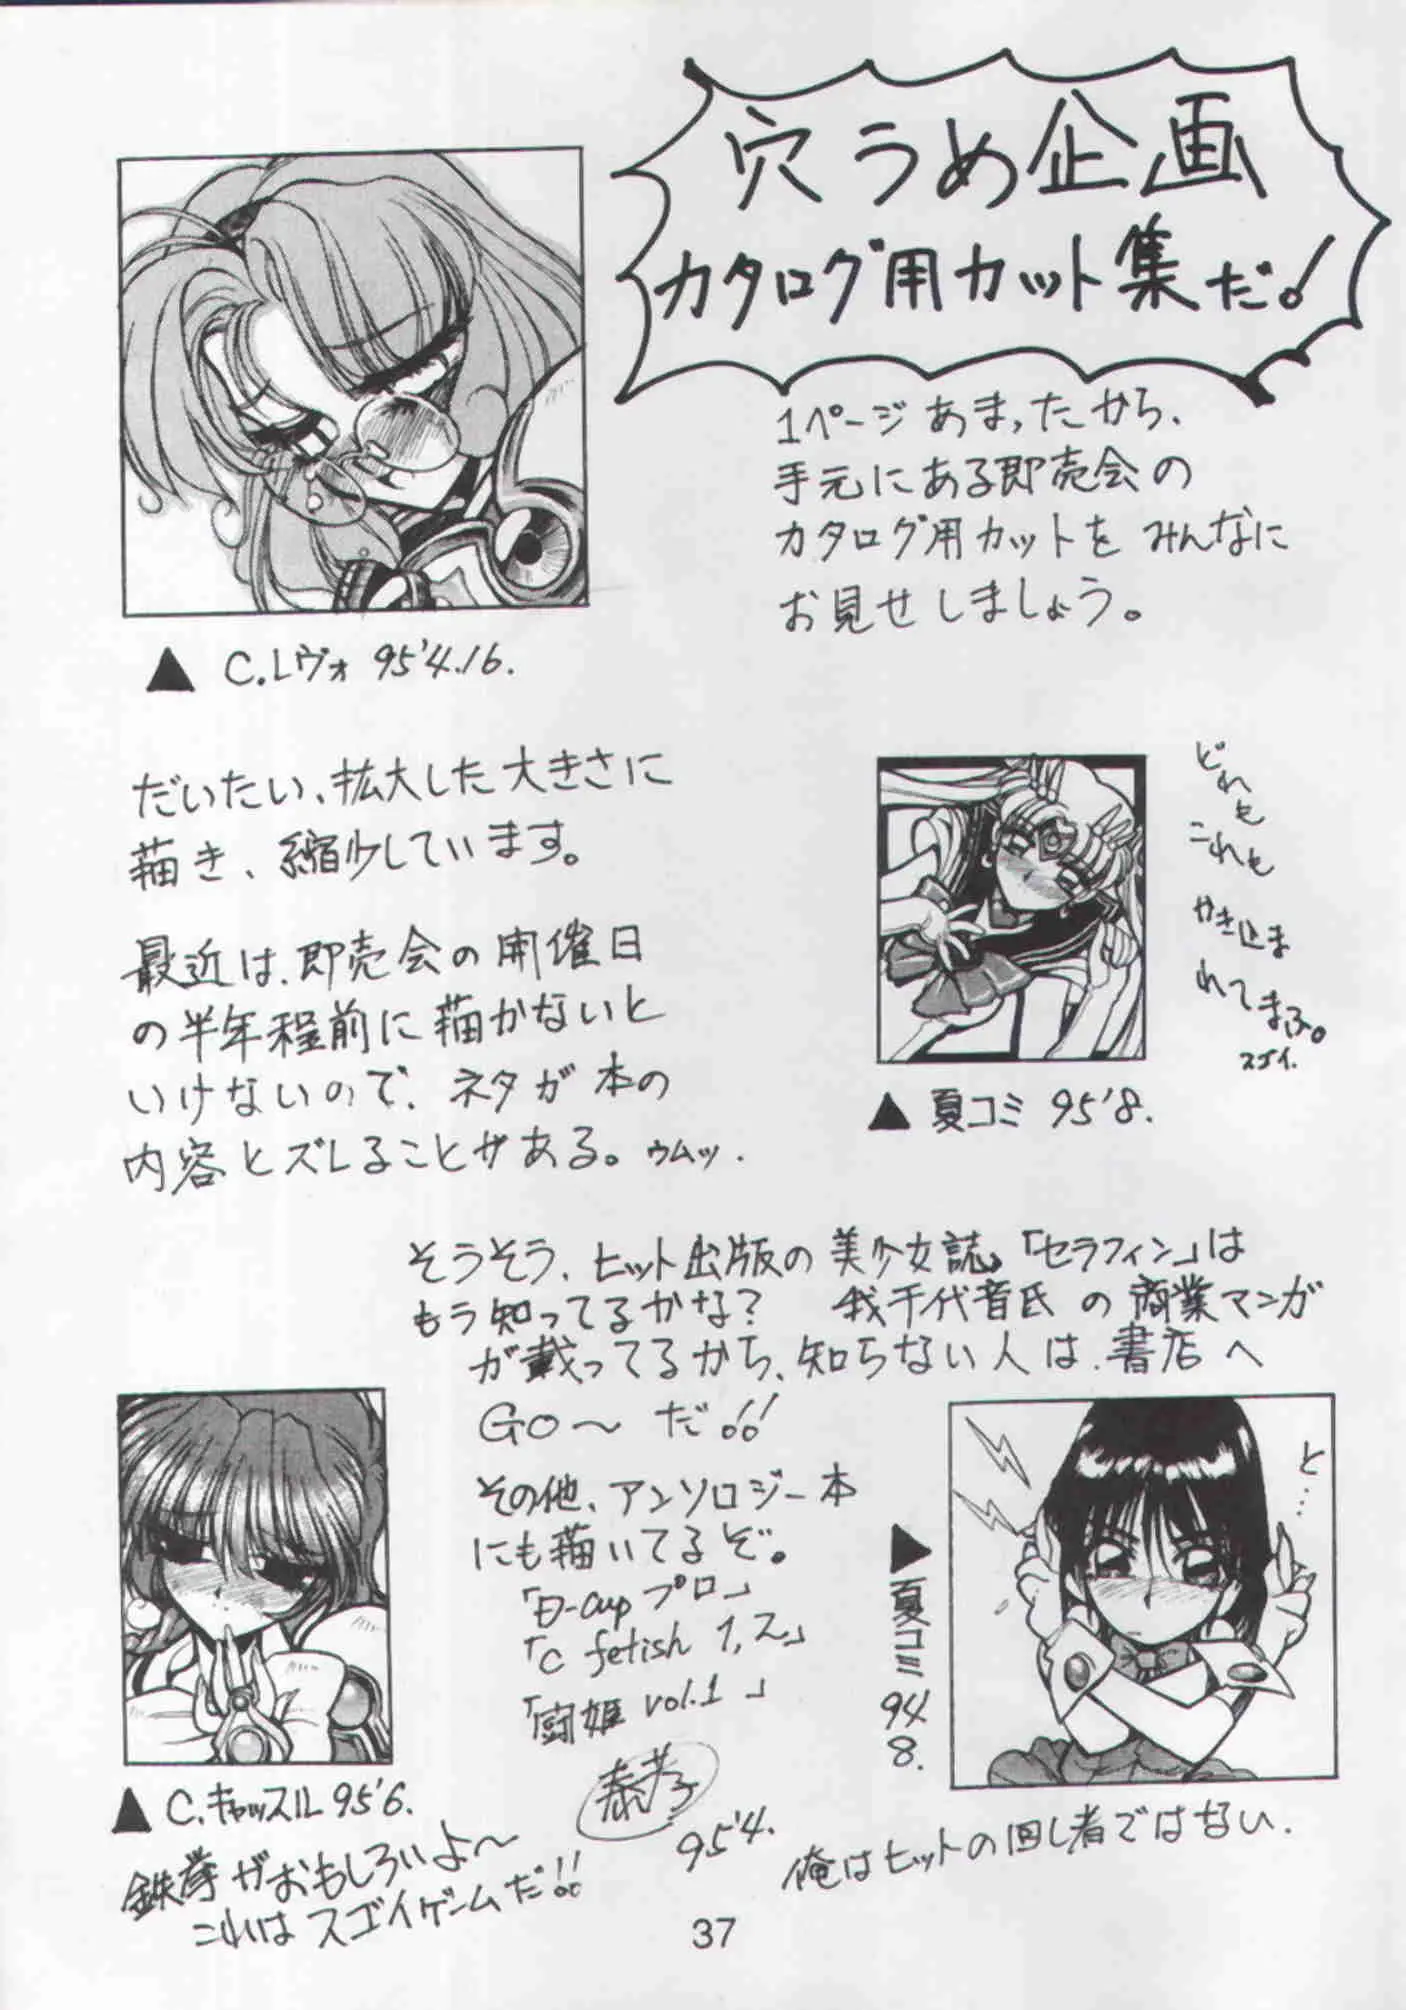 穴うめ企画
カタログ用カット集だ!
1ページあまったから、
手元にある即売会の
カタログ用カットをみんなに
お見せしましょう。
▲ C.レヴォ 95'4.16.
だいたい、拡大した大きさに
描き、縮少しています。
どれも
これも
やき込ま
れてまふ。
スゴイ.
▲ 夏コミ 95'8.
最近は、即売会の開催日
の半年程前に描かないと
いけないので、ネタが本の
内容とズレることがある。ゥムッ.
そうそう、ヒット出版の美少女誌「セラフィン」は
もう知ってるかな? 我千代音氏の商業マンガ
が載ってるから、知らない人は、書店へ
GO〜だ!!
その他、アンソロジー本
にも描いてるぞ。
「D-cupプロ」
「C fetish 1,2」
「闘姫 vol.1」
95'4.
と…
▲夏コミ 94 8.
▲ C.キャッスル 95'6.
鉄拳がおもしろいよ〜
これはスゴイゲームだ!!
俺はヒットの回し者ではない.
37